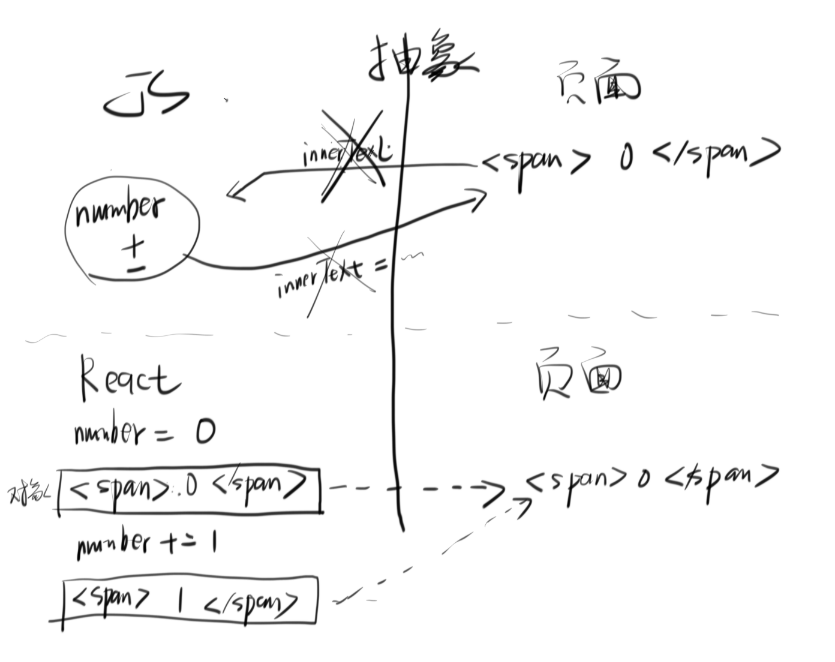 抽象
JS
页面
innerText
<span> 0 </span>
number
+
-
innerText = ...
React
页面
number = 0
对象
<span> 0 </span>
<span> 0 </span>
number += 1
<span> 1 </span>